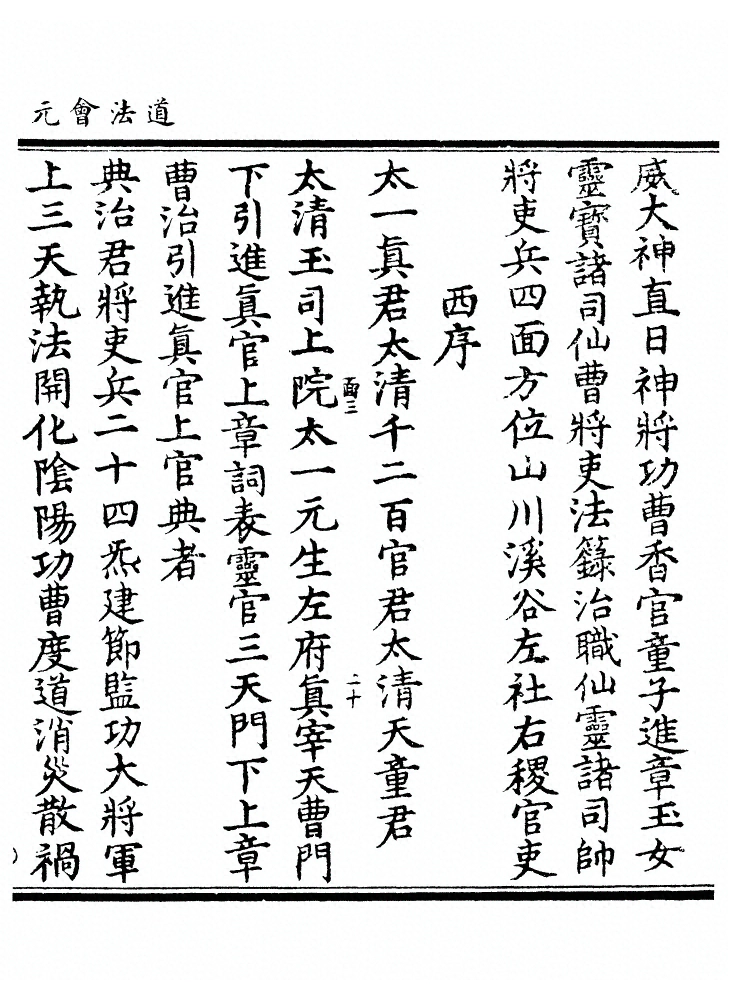 道法會元
威大神直日神將功曹香官童子進章玉女
靈寶諸司仙曹將吏法籙治職仙靈諸司帥
將吏兵四面方位山川溪谷左社右稷官吏
西序
太一眞君太清千二百官君太清天童君
面三
二十
太清玉司上院太一元生左府眞宰天曹門
下引進眞官上章詞表靈官三天門下上章
曹治引進眞官上官典者
典治君將吏兵二十四炁建節監功大將軍
上三天執法開化陰陽功曹度道消災散禍